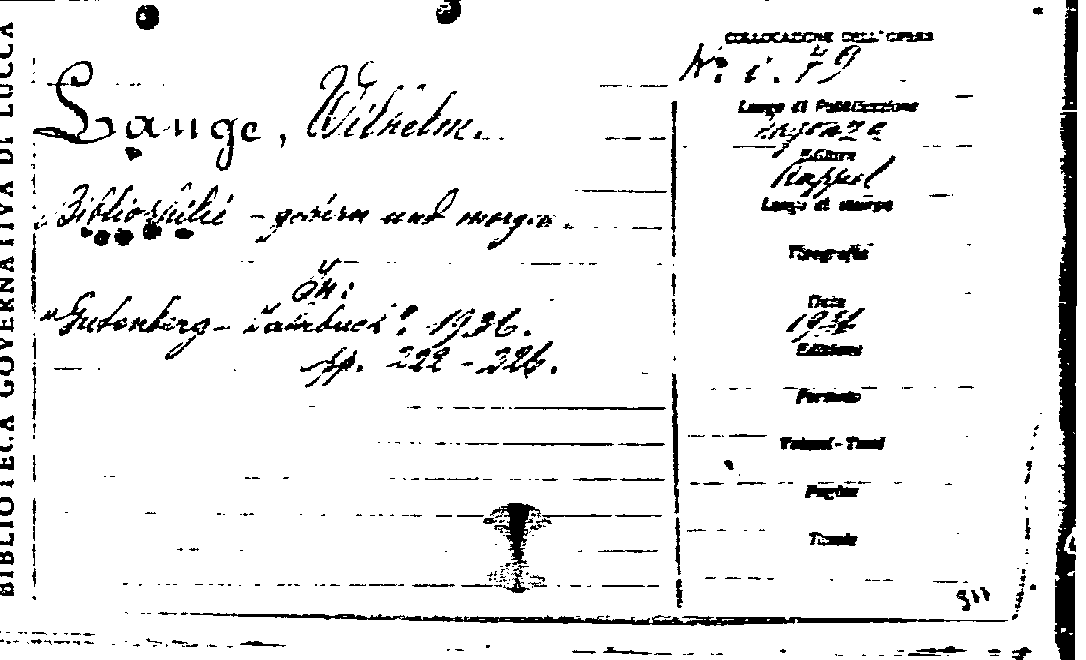 BIBLIOTECA GOVERNATIVA DI LUCCA
Lange, Wilhelm.
Bibliophilie - gestern und morgen.
In:
"Gutenberg - Jahrbuch": 1936.
pp. 222 - 226.
COLLOCAZIONE DELL'OPERA
N: i. 79
Luogo di Pubblicazione
Editore
Luogo di stampa
Tipografia
Data
1936
Edizioni
Formato
Volumi - Tomi
Pagine
Tavole